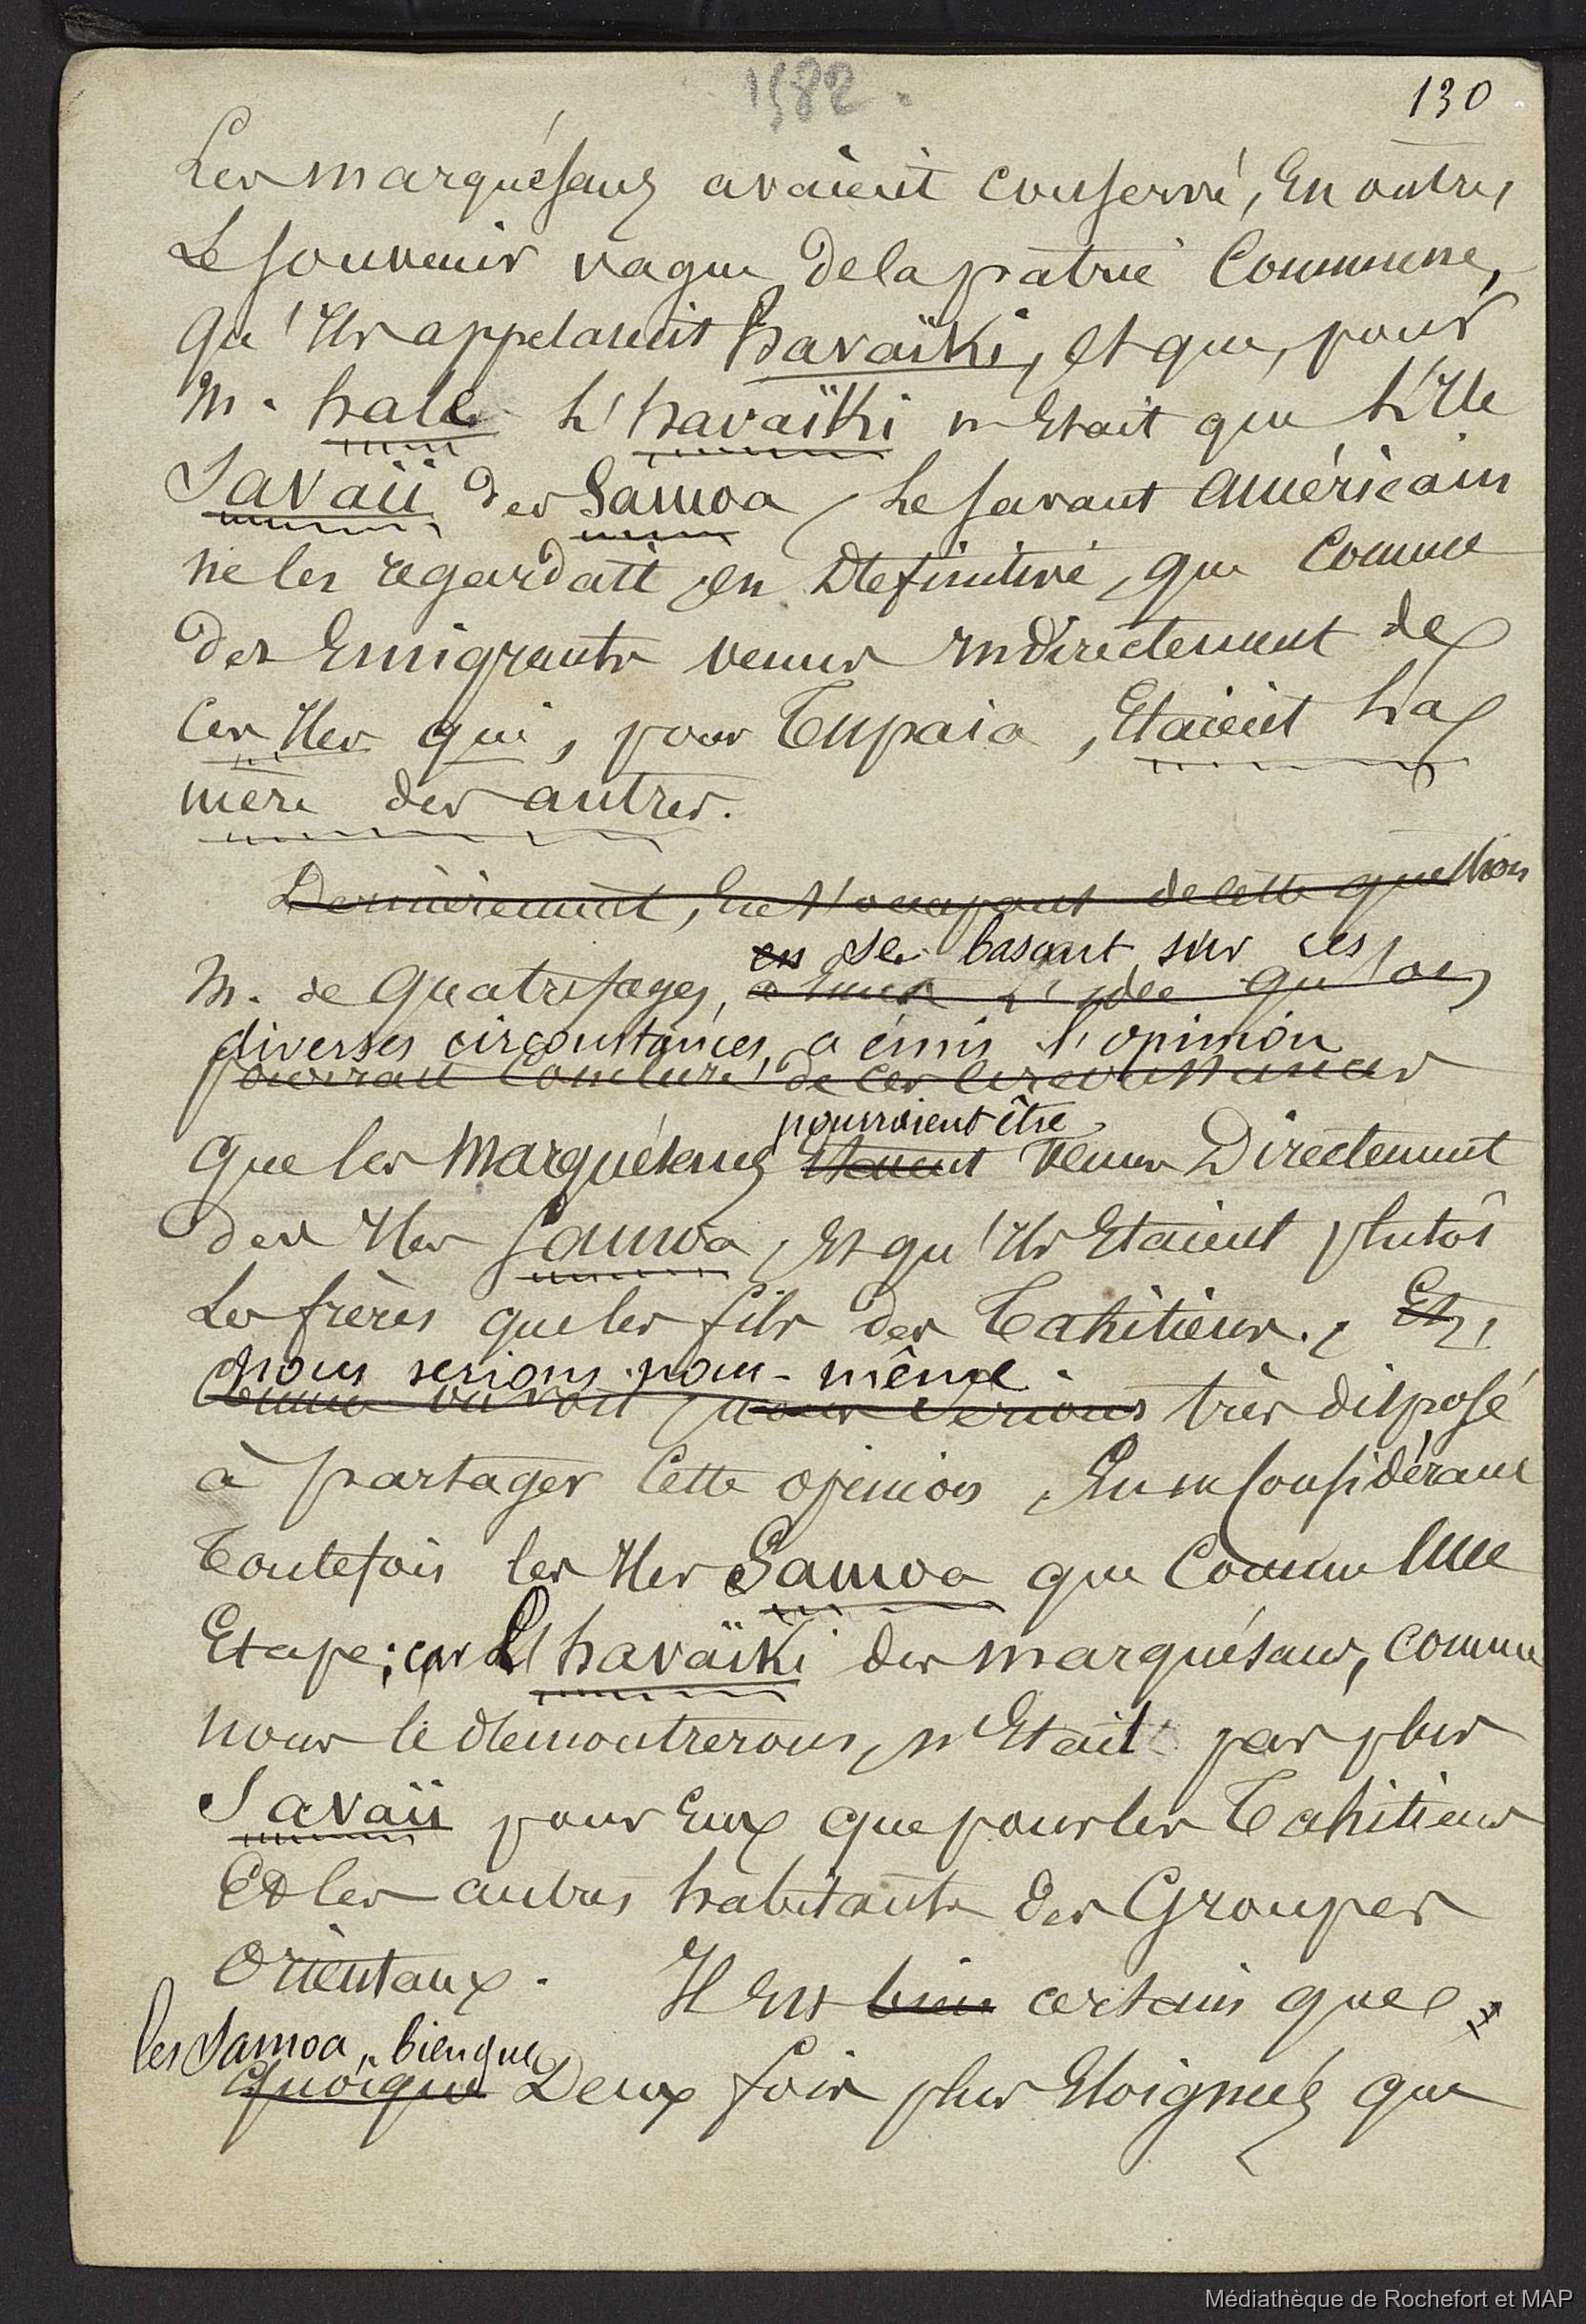 1582.
130
Les marquésans avaient conservé, En outre,
Le souvenir vague de la patrie Commune,
qu'Ils appelaient havaïki, et que, pour
M. hale L'havaïki n'Etait que L'Ile
Savaii des Samoa, Le savant américain
ne les regardait, en Définitive, que comme
des Emigrants venus Indirectement de
Ces Iles qui, pour Tupaia, Etaient La
mère des autres.
Dernièrement, En s'occupant de cette question
en se basant sur ces
M. de Quatrefages, a Emis L'idée qu'on
diverses circonstances, a émis l'opinion
pourrait Conclure de Ces Circonstances
pourraient être
que les Marquésans Etaient venus Directement
des Iles Samoa, Et qu'Ils Etaient plutôt
Les frères que les fils des Tahitiens., Et,
nous serions nous-même
Comme on voit, nous serions très disposé
à partager Cette opinion, En ne Considérant
Toutefois les Iles Samoa que Comme Une
Etape; car L'havaïki des marquésans, comme
nous le démontrerons, n'Etait pas plus
Savaii pour Eux que pour les Tahitiens
Et les autres habitants des Groupes
Orientaux. Il Est bien certain que
les Samoa, bien que
quoique Deux fois plus Eloignés que
Médiathèque de Rochefort et MAP